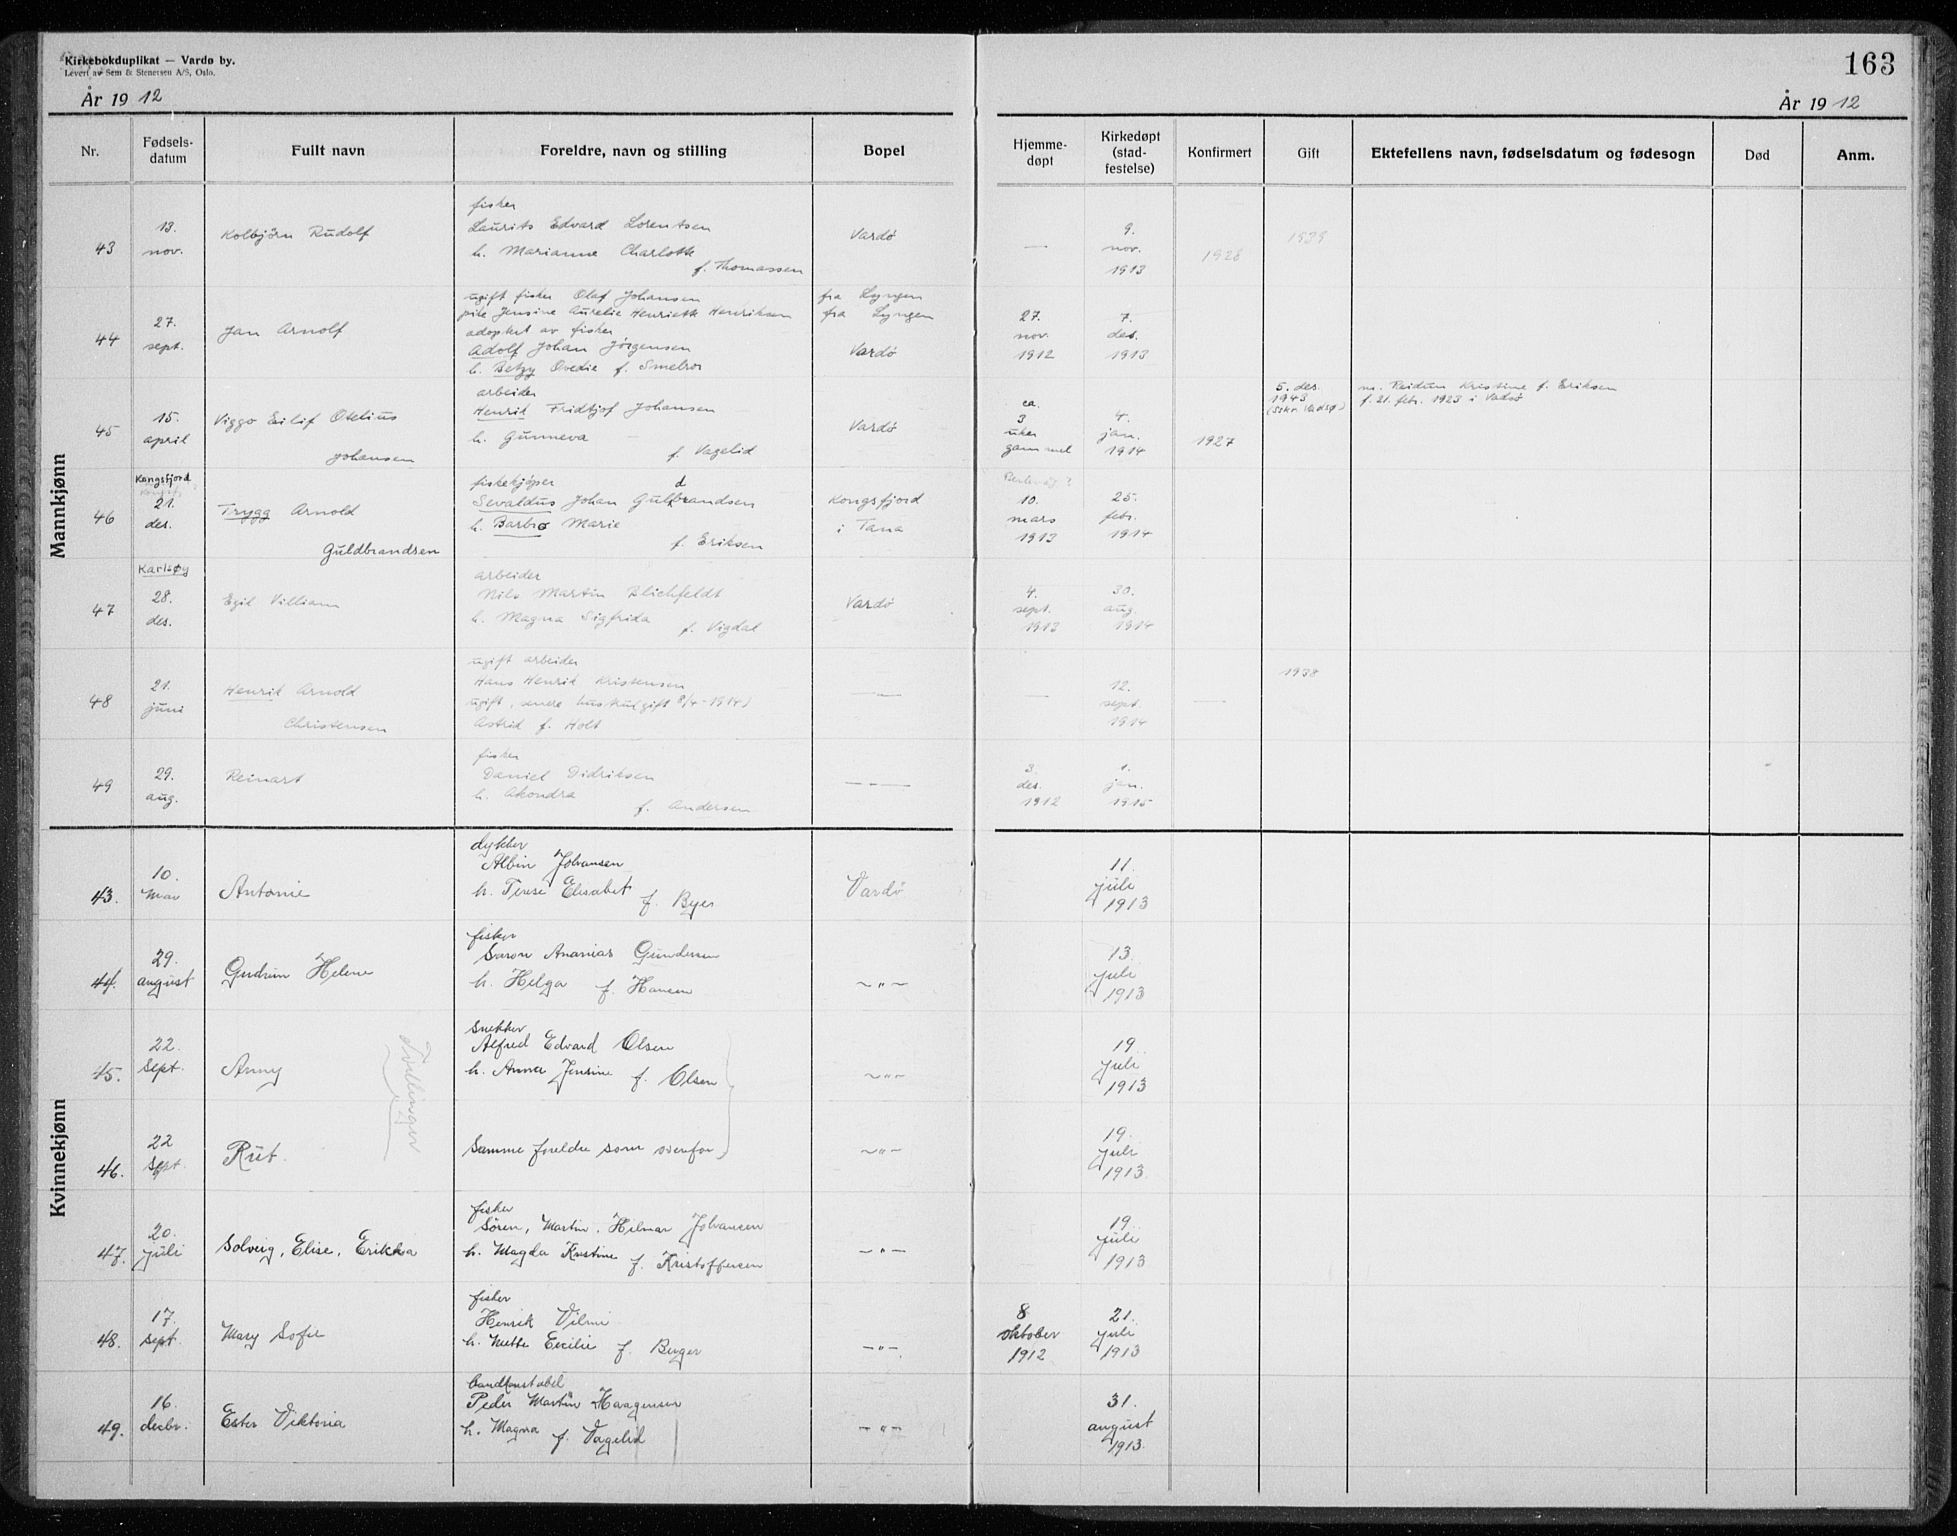 Kirkebokduplikat — Vardø by.
Levert av Sem & Stenersen A/S, Oslo.
År 1912
163
År 1912
Nr.
Fødsels-
datum
Fullt navn
Foreldre, navn og stilling
Bopel
Hjemme-
døpt
Kirkedøpt
(stad-
festelse)
Konfirmert
Gift
Ektefellens navn, fødselsdatum og fødesogn
Død
Anm.
Mannkjønn
43
13.
nov.
Kolbjörn Rudolf
fisker
Laurits Edvard Lorentsen
h. Marianne Charlotte
f. Thomassen
Vardö
—
9.
nov.
1913
1928
1939
44
27.
sept.
Jan Arnolf
ugift fisker Olaf Johansen
pike Jensine Aurelie Henriette Henriksen
adoptert av fisker
Adolf Johan Jörgensen
h. Betzy Ovedie f. Smelror
fra Lyngen
fra Lyngen
Vardö
27.
nov.
1912
7.
des.
1913
45
15.
april
Viggo Eilif Otelius
Johansen
arbeider
Henrik Fridtjof Johansen
h. Gunneva
f. Vagelid
Vardö
ca.
3
uker
gammel
4.
jan.
1914
1927
5. des.
1943
m. Reidun Kristine f. Eriksen
f. 21. febr. 1923 i Vadsö
46
Kongsfjord
21.
des.
Trygg Arnold
Guldbrandsen
fiskekjøper
Sevaldus Johan Guldbrandsen
h. Barbro Marie
f. Eriksen
Kongsfjord
i Tana
10.
mars
1913
25.
febr.
1914
47
Karlsøy
28.
des.
Egil Villiam
arbeider
Nils Martin Blichfeldt
h. Magna Sigfrida
f. Vigdal
Vardö
4.
sept.
1913
30.
aug.
1914
48
21.
juni
Henrik Arnold
Christensen
ugift arbeider
Hans Henrik Kristensen
ugift, senere hustru (gift 8/4-1914)
Astrid f. Holt
—"—
—
12.
sept.
1914
—
1938
49
29.
aug.
Reinart
fisker
Daniel Didriksen
h. Akondra
f. Andersen
— — —
3.
des.
1912
1.
jan.
1915
Kvinnekjønn
43.
10.
Mar
Antonie
dykker
Albin Johansen
h. Terese Elisabet f. Byer
Vardö
11.
juli
1913
44.
29.
august
Gudrun Helene
fisker
Saron Ananias Gundersen
h. Helga f. Hansen
—"—
13.
juli
1913
45.
22.
Sept.
Anny
Tvillinger
snekker
Alfred Edvard Olsen
h. Anna Jensine f. Olsen
—"—
19.
juli
1913
46.
22
Sept.
Rut.
Samme foreldre som ovenfor
—"—
19.
juli
1913
47.
20.
juli
Solveig, Elise, Erikka
fisker
Sören, Martin, Hilmar Johansen
h. Magda Kristine f. Kristoffersen
—"—
19.
juli
1913
48.
17.
sept.
Mary Sofie
fisker
Henrik Vilmi
h. Mette Cecilie f. Berger
—"—
8
oktober
1912
21.
juli
1913
49.
16.
decbr.
Ester Viktoria
Landkonstabel
Peder Martin Haagensen
h. Magna f. Vagelid
—"—
31.
august
1913.